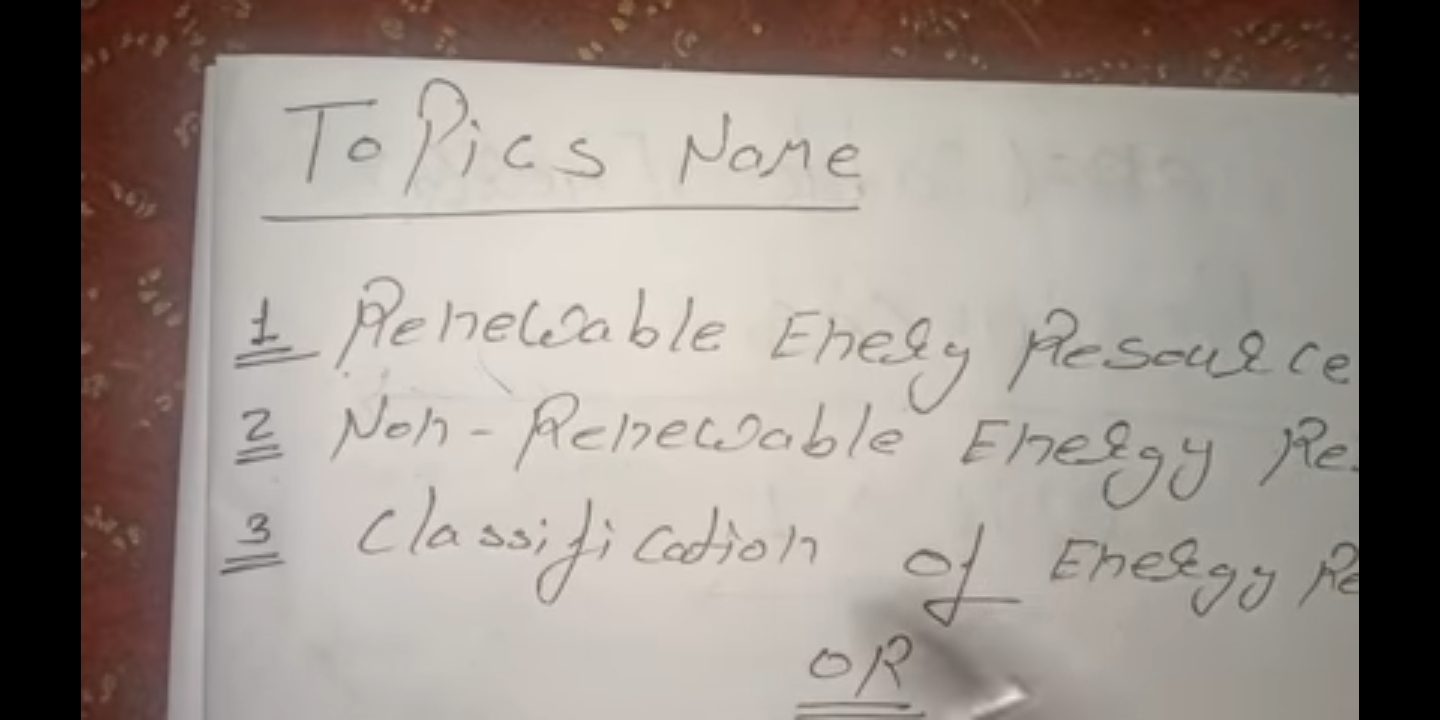 Topics Name
1 Renewable Enery Resource
2 Non-Renewable Energy Re
3 Classification of Energy Re
OR